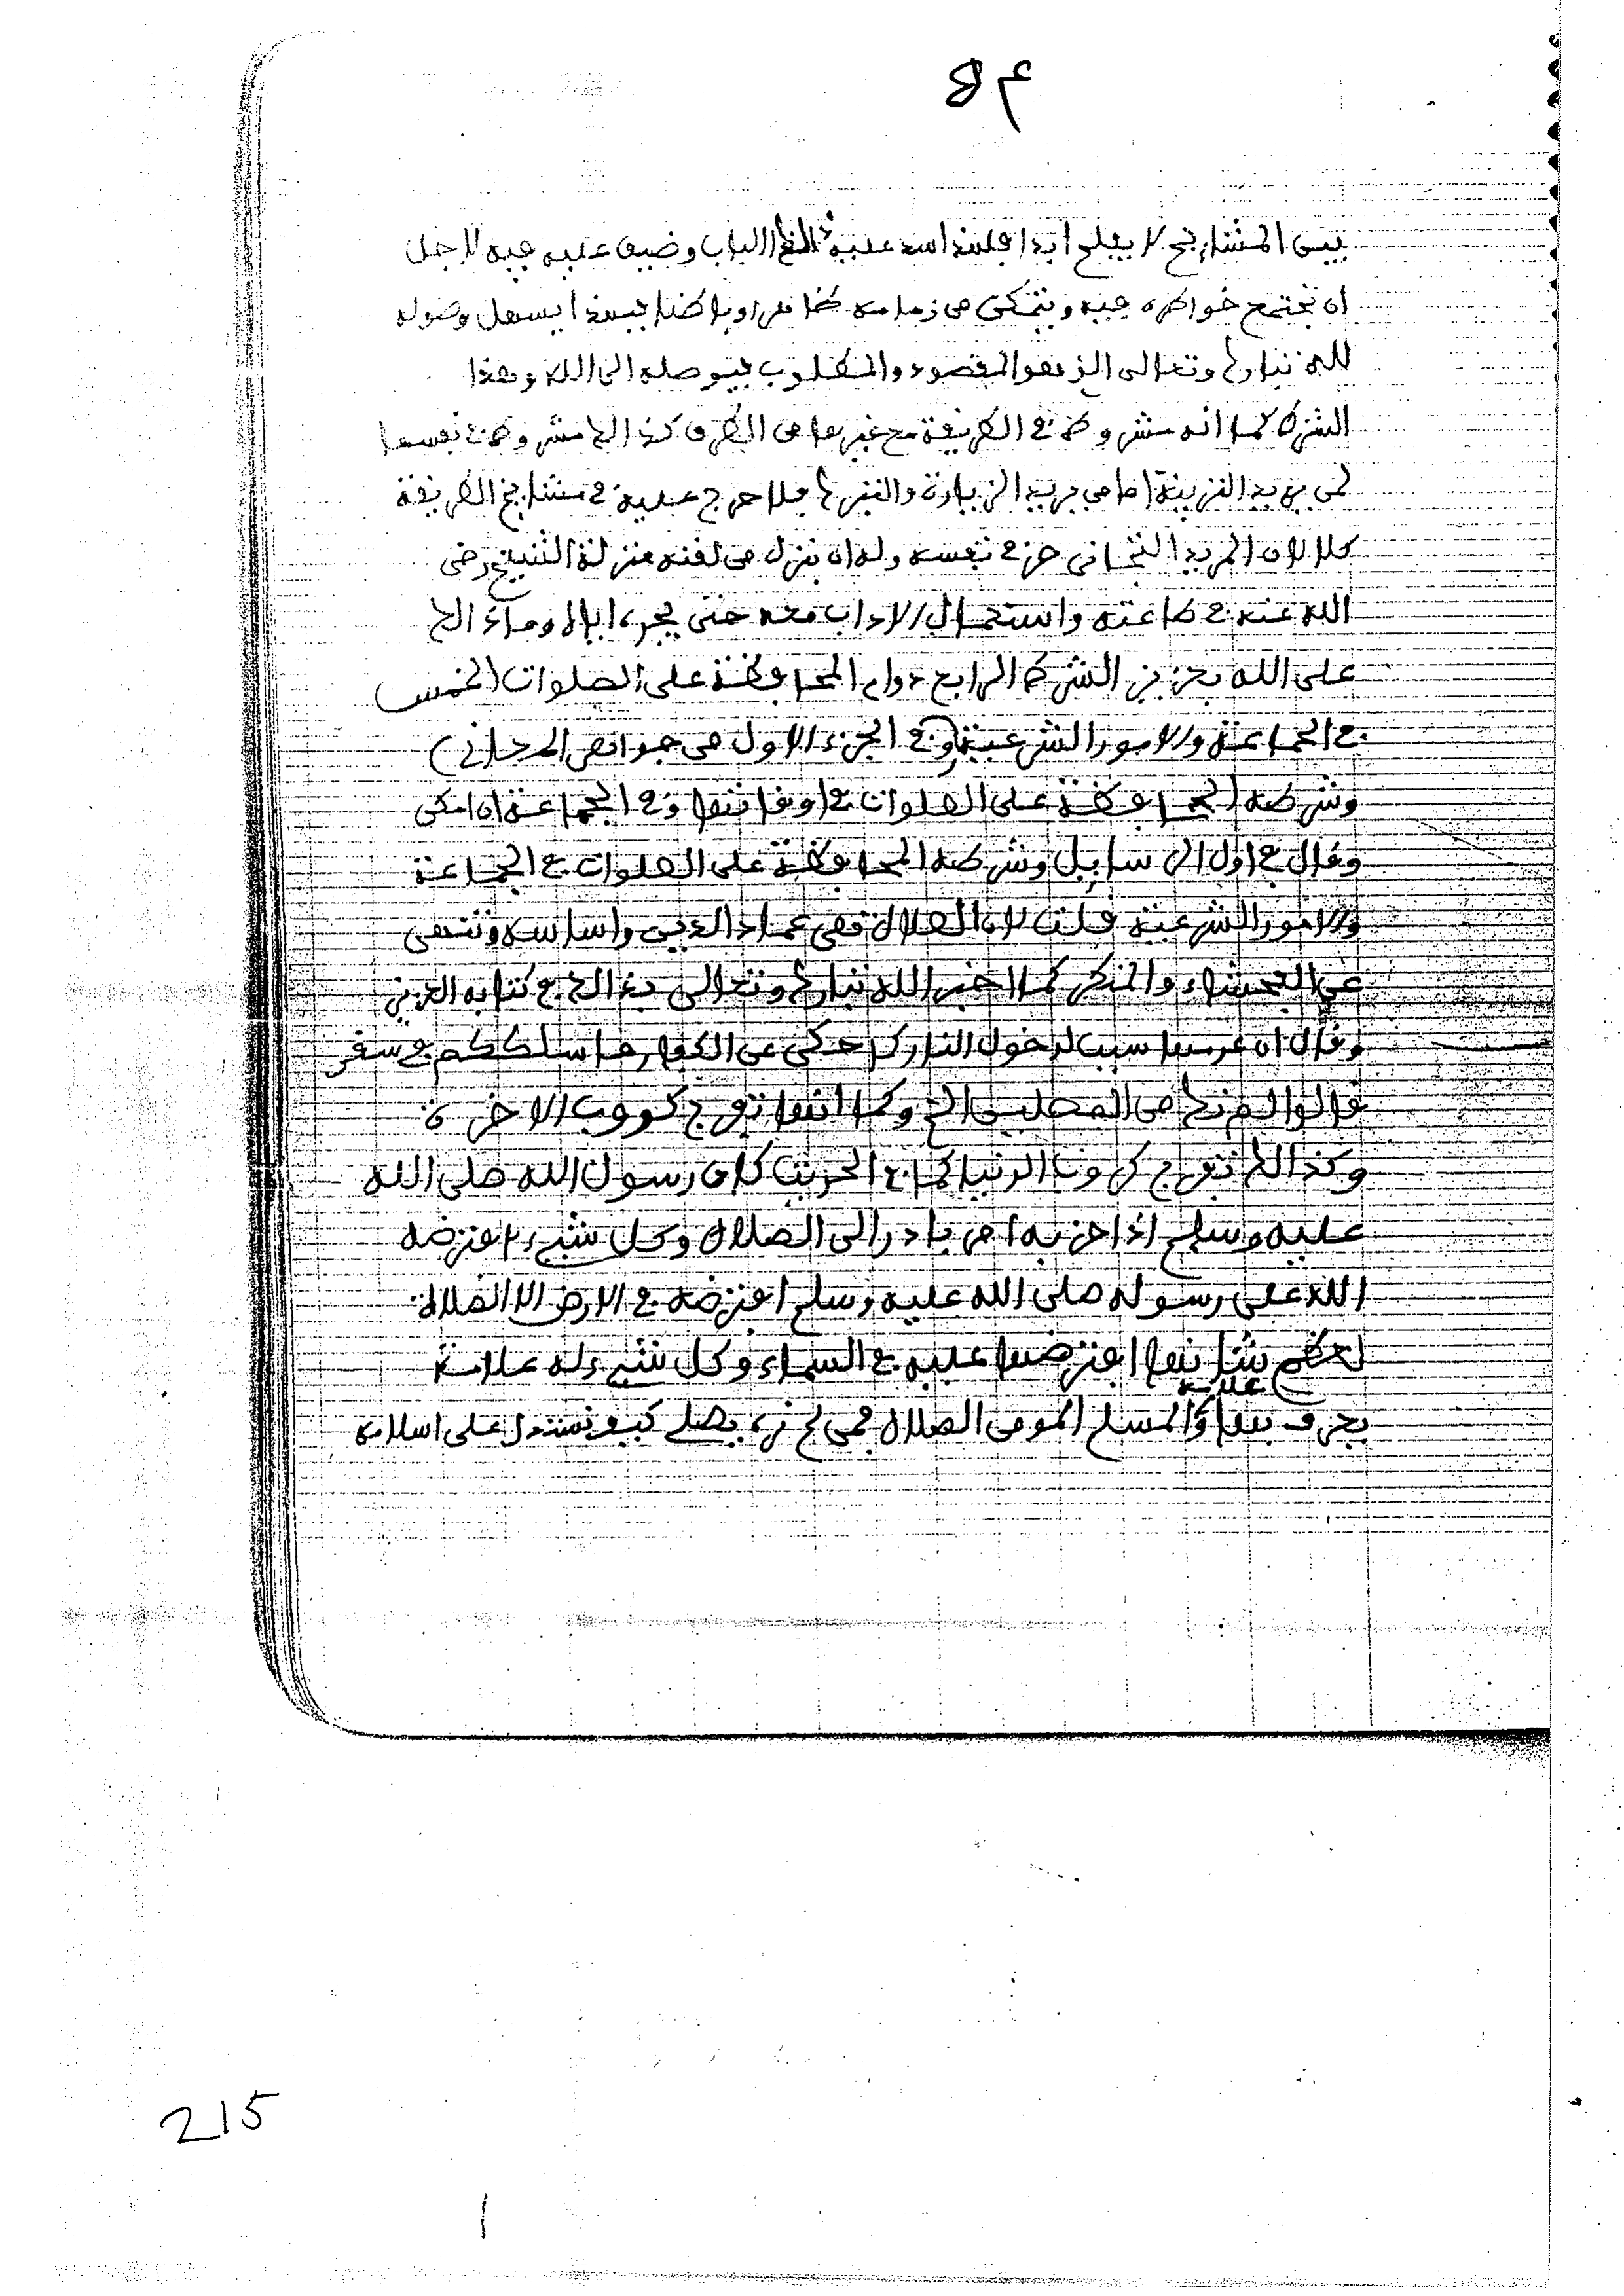 بين المشايخ لا يفلح ابدا فلهذا اسد عليه ذالك الباب وضيق عليه فيه لاجل
ان تجتمع خواطره فيه ويتمكن من زمامه ظاهرا وباطنا فبهذا يسهل وصوله
لله تبارك وتعالى الذي هو المقصود والمطلوب فيوصله الى الله وهذا
الشرط كما انه مشروط في الطريقة مع غيرها من الطرق كذالك مشروط في نفسها
لمن يريد التربية اما من يريد الزيارة والتبرك فلا حرج عليه في مشايخ الطريقة
كلا لان المريد التجاني حر في نفسه وله ان ينزل من لقنه منزلة الشيخ رضي
الله عنه في طاعته واستعمال الاداب معه حتى يجد اباه وما ذالك
على الله بعزيز الشرط الرابع دوام المحافظة على الصلوات الخمس
في الجماعة والامور الشرعية (وفي الجزء الاول من جواهر المعاني)
وشرطه المحافظة على الصلوات في اوقاتها وفي الجماعة ان امكن
وقال في اول الرسايل وشرطه المحافظة على الصلوات في الجماعة
والامور الشرعية قلت لان الصلاة هي عماد الدين واساسه وتنهى
عن الفحشاء والمنكر كما اخبر الله تبارك وتعالى بذالك في كتابه العزيز
وقال ان عدمها سبب لدخول النار كما حكى عن الكفار ما سلككم في سقر
قالوا لم نك من المصلين الخ وكما انها تفرج كروب الاخرة
وكذالك تفرج كروب الدنيا كما في الحديث كان رسول الله صلى الله
عليه وسلم اذا حزبه امر بادر الى الصلاة وكل شيء افترضه
الله على رسوله صلى الله عليه وسلم افترضه في الارض الا الصلاة
لعظم شانها افترضها عليه في السماء وكل شيء له علامة
علامة
يعرف بها والمسلم المومن الصلاة فمن لم نره يصلي كيف نستدل على اسلامه
215